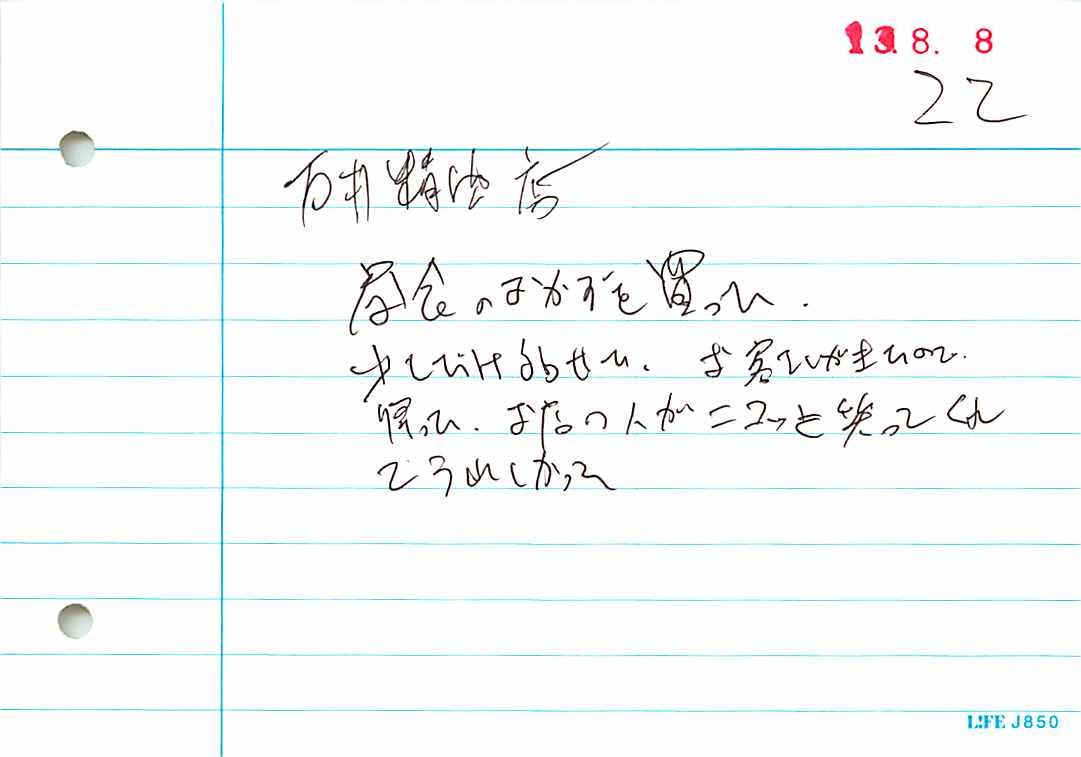 13. 8. 8
22
石井精肉店
昼食のおかずを買った.
少しだけ話せた. お客さんが来たので.
帰った. お店の人がニコッと笑ってくれ
てうれしかった
LIFE J850